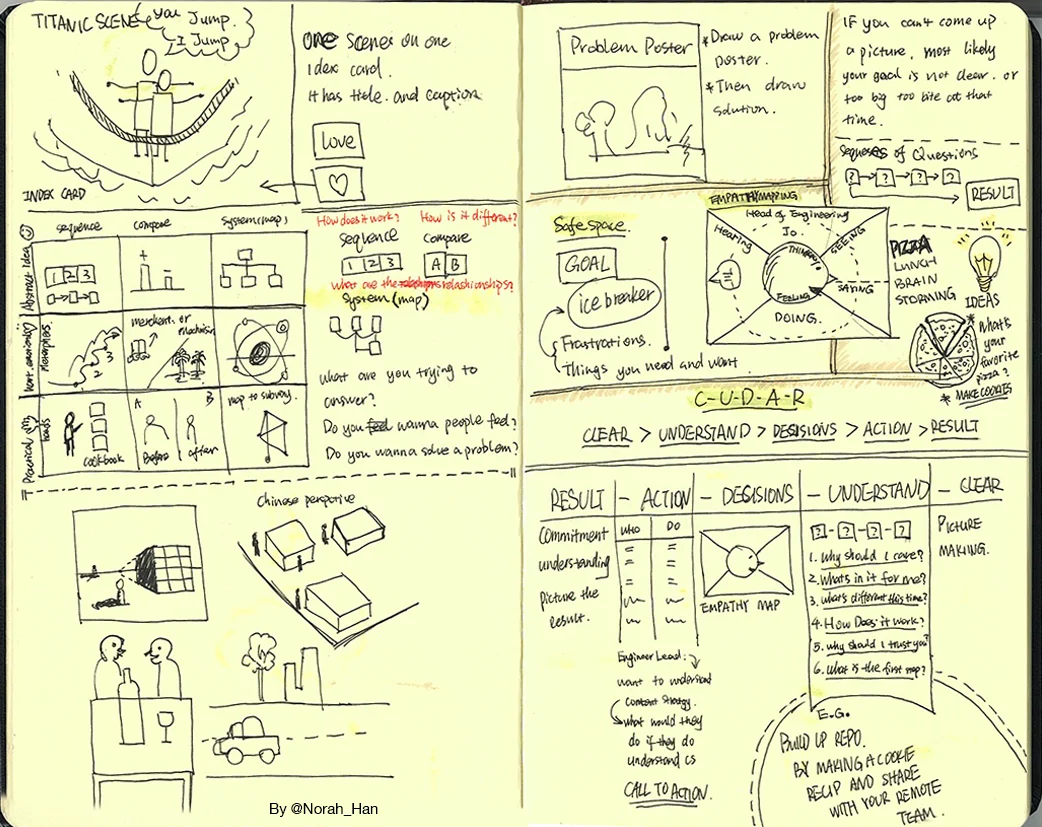 TITANIC SCENE
you Jump.
I Jump
INDEX CARD
one Scenes on one
Idex card.
It has title. and caption
love
sequence
compare
system(map)
Abstract Idea
1 2 3
Metorphers
1
2
3
merchant. or
Practical
tools
cookbook
A
B
Before
after
map to subway.
How does it work?
How is it different?
Sequence
Compare
1 2 3
A B
what are the relaships relashionships?
System (map)
what are you trying to
answer?
Do you feel wanna people feel?
Do you wanna solve a problem?
Chinese perspective
Problem Poster
*Draw a problem
poster.
*Then draw
solution.
IF you can't come up
a picture, most likely
your goal is not clear. or
too big too bite at that
time.
Sequeses of Questions
? → ? → ? → ?
RESULT
Safe space.
GOAL
ice breaker
Frustrations.
Things you need and want
EMPATHY mapping
Head of Engineering
Jo.
Hearing
SEEING
THINKING
SAYING
FEELING
DOING.
PIZZA
LUNCH
BRAIN
STORMING
IDEAS
* What's
your
favorite
pizza?
* MAKE COOKIES
C-U-D-A-R
CLEAR > UNDERSTAND > DESISIONS > ACTION > RESULT
RESULT - ACTION - DESISIONS - UNDERSTAND - CLEAR
Commitment
understanding
picture the
result.
WHO
DO
EMPATHY MAP
? - ? - ? - ?
1. why should I care?
2. whats in it for me?
3. what's different this time?
4. How Does it work?
5. why should I trust you?
6. What is the first step?
PICTURE
MAKIING.
Enginer Lead:
want to understand
content strategy.
what would they
do if they do
understand cs
CALL TO ACTION.
E.G.
BUILD UP REPO.
BY MAKING A COOKIE
RECIP AND SHARE
WITH YOUR REMOTE
TEAM.
By @Norah_Han